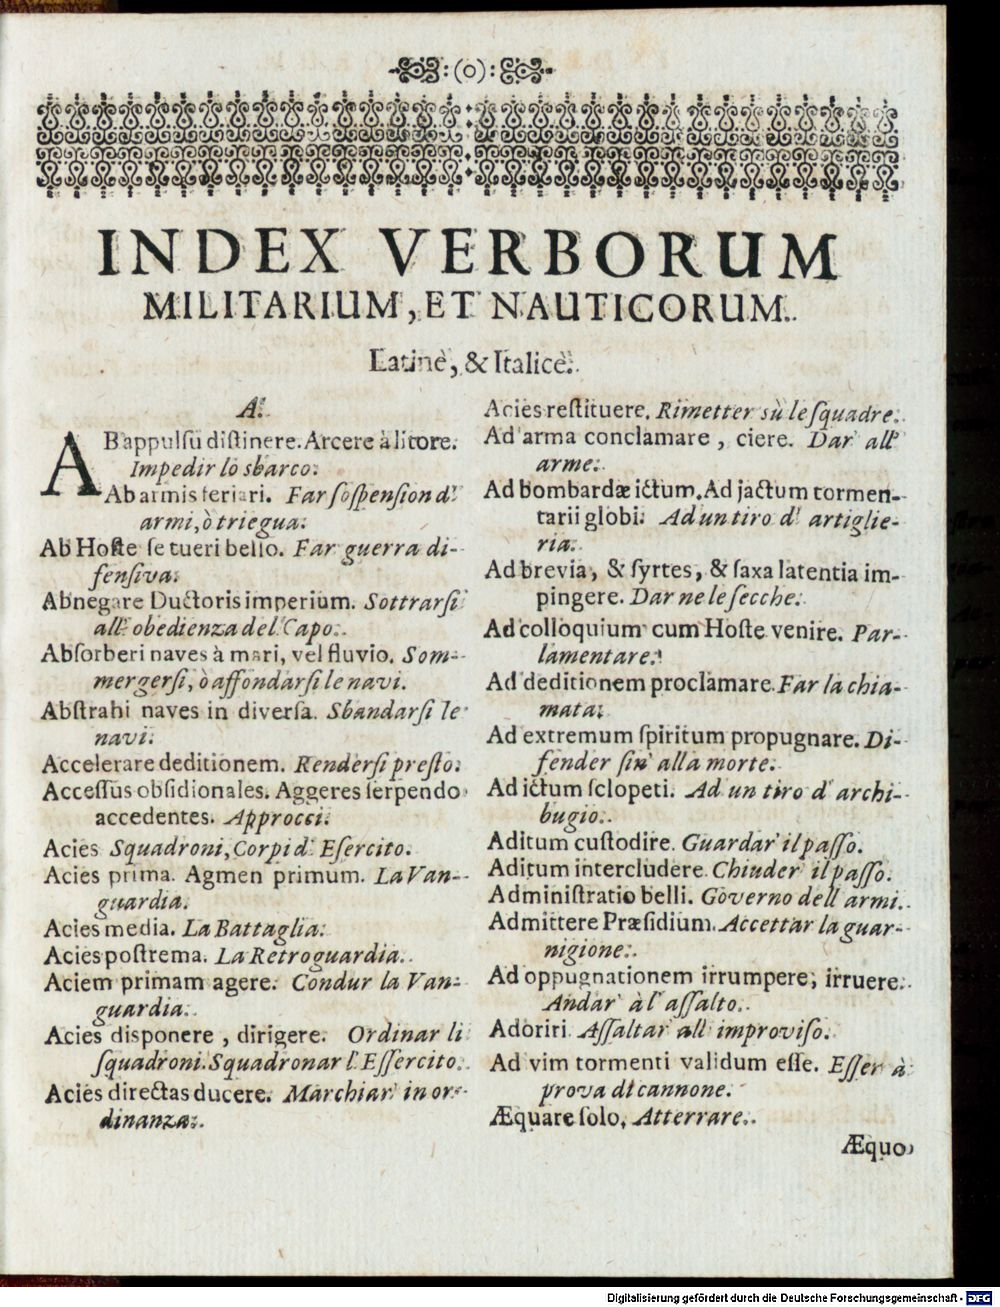 (o)
INDEX VERBORUM
MILITARIUM, ET NAUTICORUM.
Latinè, & Italicè.
A.
AB appulsu distinere. Arcere à litore.
Impedir lo sbarco.
Ab armis feriari. Far sospension d'
armi, ò triegua.
Ab Hoste se tueri bello. Far guerra di-
fensiva.
Abnegare Ductoris imperium. Sottrarsi
all' obedienza del Capo.
Absorberi naves à mari, vel fluvio. Som-
mergersi, ò affondarsi le navi.
Abstrahi naves in diversa. Sbandarsi le
navi.
Accelerare deditionem. Rendersi presto.
Accessus obsidionales. Aggeres serpendo
accedentes. Approcci.
Acies Squadroni, Corpi d' Esercito.
Acies prima. Agmen primum. La Van-
guardia.
Acies media. La Battaglia.
Acies postrema. La Retroguardia.
Aciem primam agere. Condur la Van-
guardia.
Acies disponere, dirigere. Ordinar li
squadroni. Squadronar l' Essercito.
Acies directas ducere. Marchiar in or-
dinanza.
Acies restituere. Rimetter sù le squadre.
Ad arma conclamare, ciere. Dar all'
arme.
Ad bombardæ ictum. Ad jactum tormen-
tarii globi. Ad un tiro d' artiglie-
ria.
Ad brevia, & syrtes, & saxa latentia im-
pingere. Dar ne le secche.
Ad colloquium cum Hoste venire. Par-
lamentare.
Ad deditionem proclamare. Far la chia-
mata.
Ad extremum spiritum propugnare. Di-
fender sin' alla morte.
Ad ictum sclopeti. Ad un tiro d' archi-
bugio.
Aditum custodire. Guardar' il passo.
Aditum intercludere. Chiuder' il passo.
Administratio belli. Governo dell' armi.
Admittere Præsidium. Accettar la guar-
nigione.
Ad oppugnationem irrumpere, irruere.
Andar' à l' assalto.
Adoriri. Assaltar' all' improviso.
Ad vim tormenti validum esse. Esser à
prova di cannone.
Æquare solo. Atterrare.
Æquo
Digitalisierung gefördert durch die Deutsche Forschungsgemeinschaft - DFG